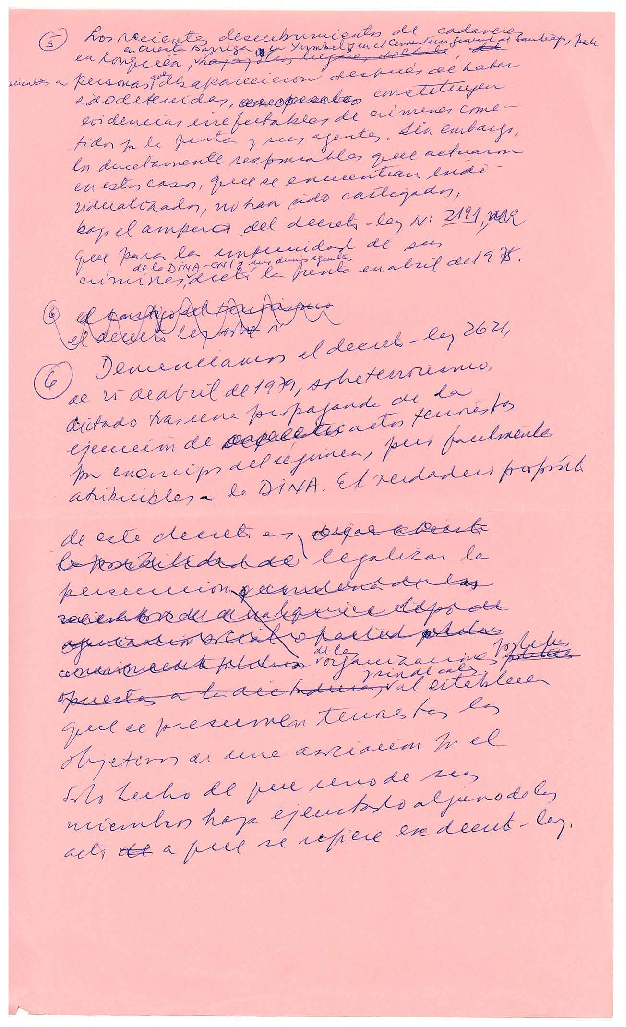 ⑤ Los recientes descubrimientos de cadáveres
en cuesta Barriga, en Yumbel y en el Cementerio General de Santiago, perte-
en Lonquén,
necientes a personas que desaparecieron después de haber
sido detenidas, constituyen
evidencias irrefutables de crímenes come-
tidos p. la junta y sus agentes. Sin embargo,
los directamente responsables que actuaron
en estos casos, que se encuentran indi-
vidualizados, no han sido castigados,
bajo el amparo del decreto-ley N: 2191,
que para la impunidad de sus
de la DINA-CNI y sus demás agentes
crímenes, dictó la junta en abril de 1978.
⑥ el castigo del
el decreto ley
⑥ Denunciamos el decreto-ley 2621,
de 25 de abril de 1979, sobre terrorismo,
dictado tras una propaganda de la
ejecución de actos terroristas
por enemigos del régimen, pero facilmente
atribuibles a la DINA. El verdadero propósito
de este decreto es, dejar abierta
la posibilidad de legalizar la
persecución
miembros de cualquier tipo de
de las organizaciones políticas
y sindicales
opuestas a la dictadura, y al establecer
que se presumen terroristas los
objetivos de una asociación por el
solo hecho de que uno de sus
miembros haya ejecutado alguno de los
actos de a que se refiere ese decreto-ley.